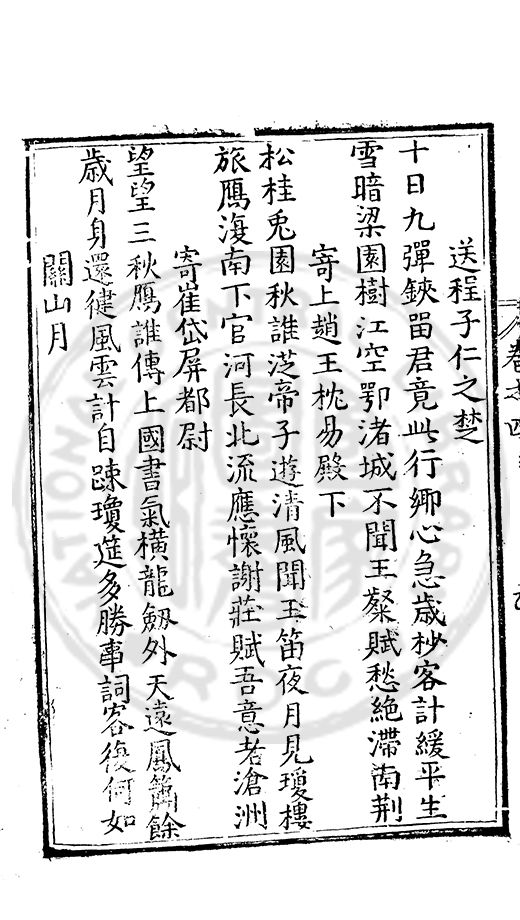 送程子仁之楚
十日九彈鋏畱君竟此行鄉心急歲杪客計緩平生
雪暗梁園樹江空鄂渚城不聞王粲賦愁絶滯南荆
寄上趙王枕易殿下
松桂兎園秋誰從帝子遊清風聞玉笛夜月見瓊樓
旅鴈復南下官河長北流應懷謝莊賦吾意老滄洲
寄崔岱屏都尉
望望三秋鴈誰傳上國書氣橫龍劒外天遠鳳簫餘
歲月身還健風雲計自踈瓊筵多勝事詞客復何如
關山月